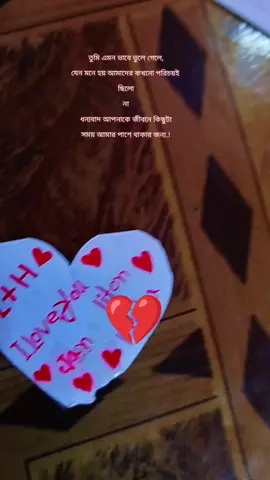 তুমি এমন ভাবে ভুলে গেলে,
যেন মনে হয় আমাদের কখনো পরিচয়ই
ছিলো
না
ধন্যবাদ আপনাকে জীবনে কিছুটা
সময় আমার পাশে থাকার জন্য.!
I love you
Jan